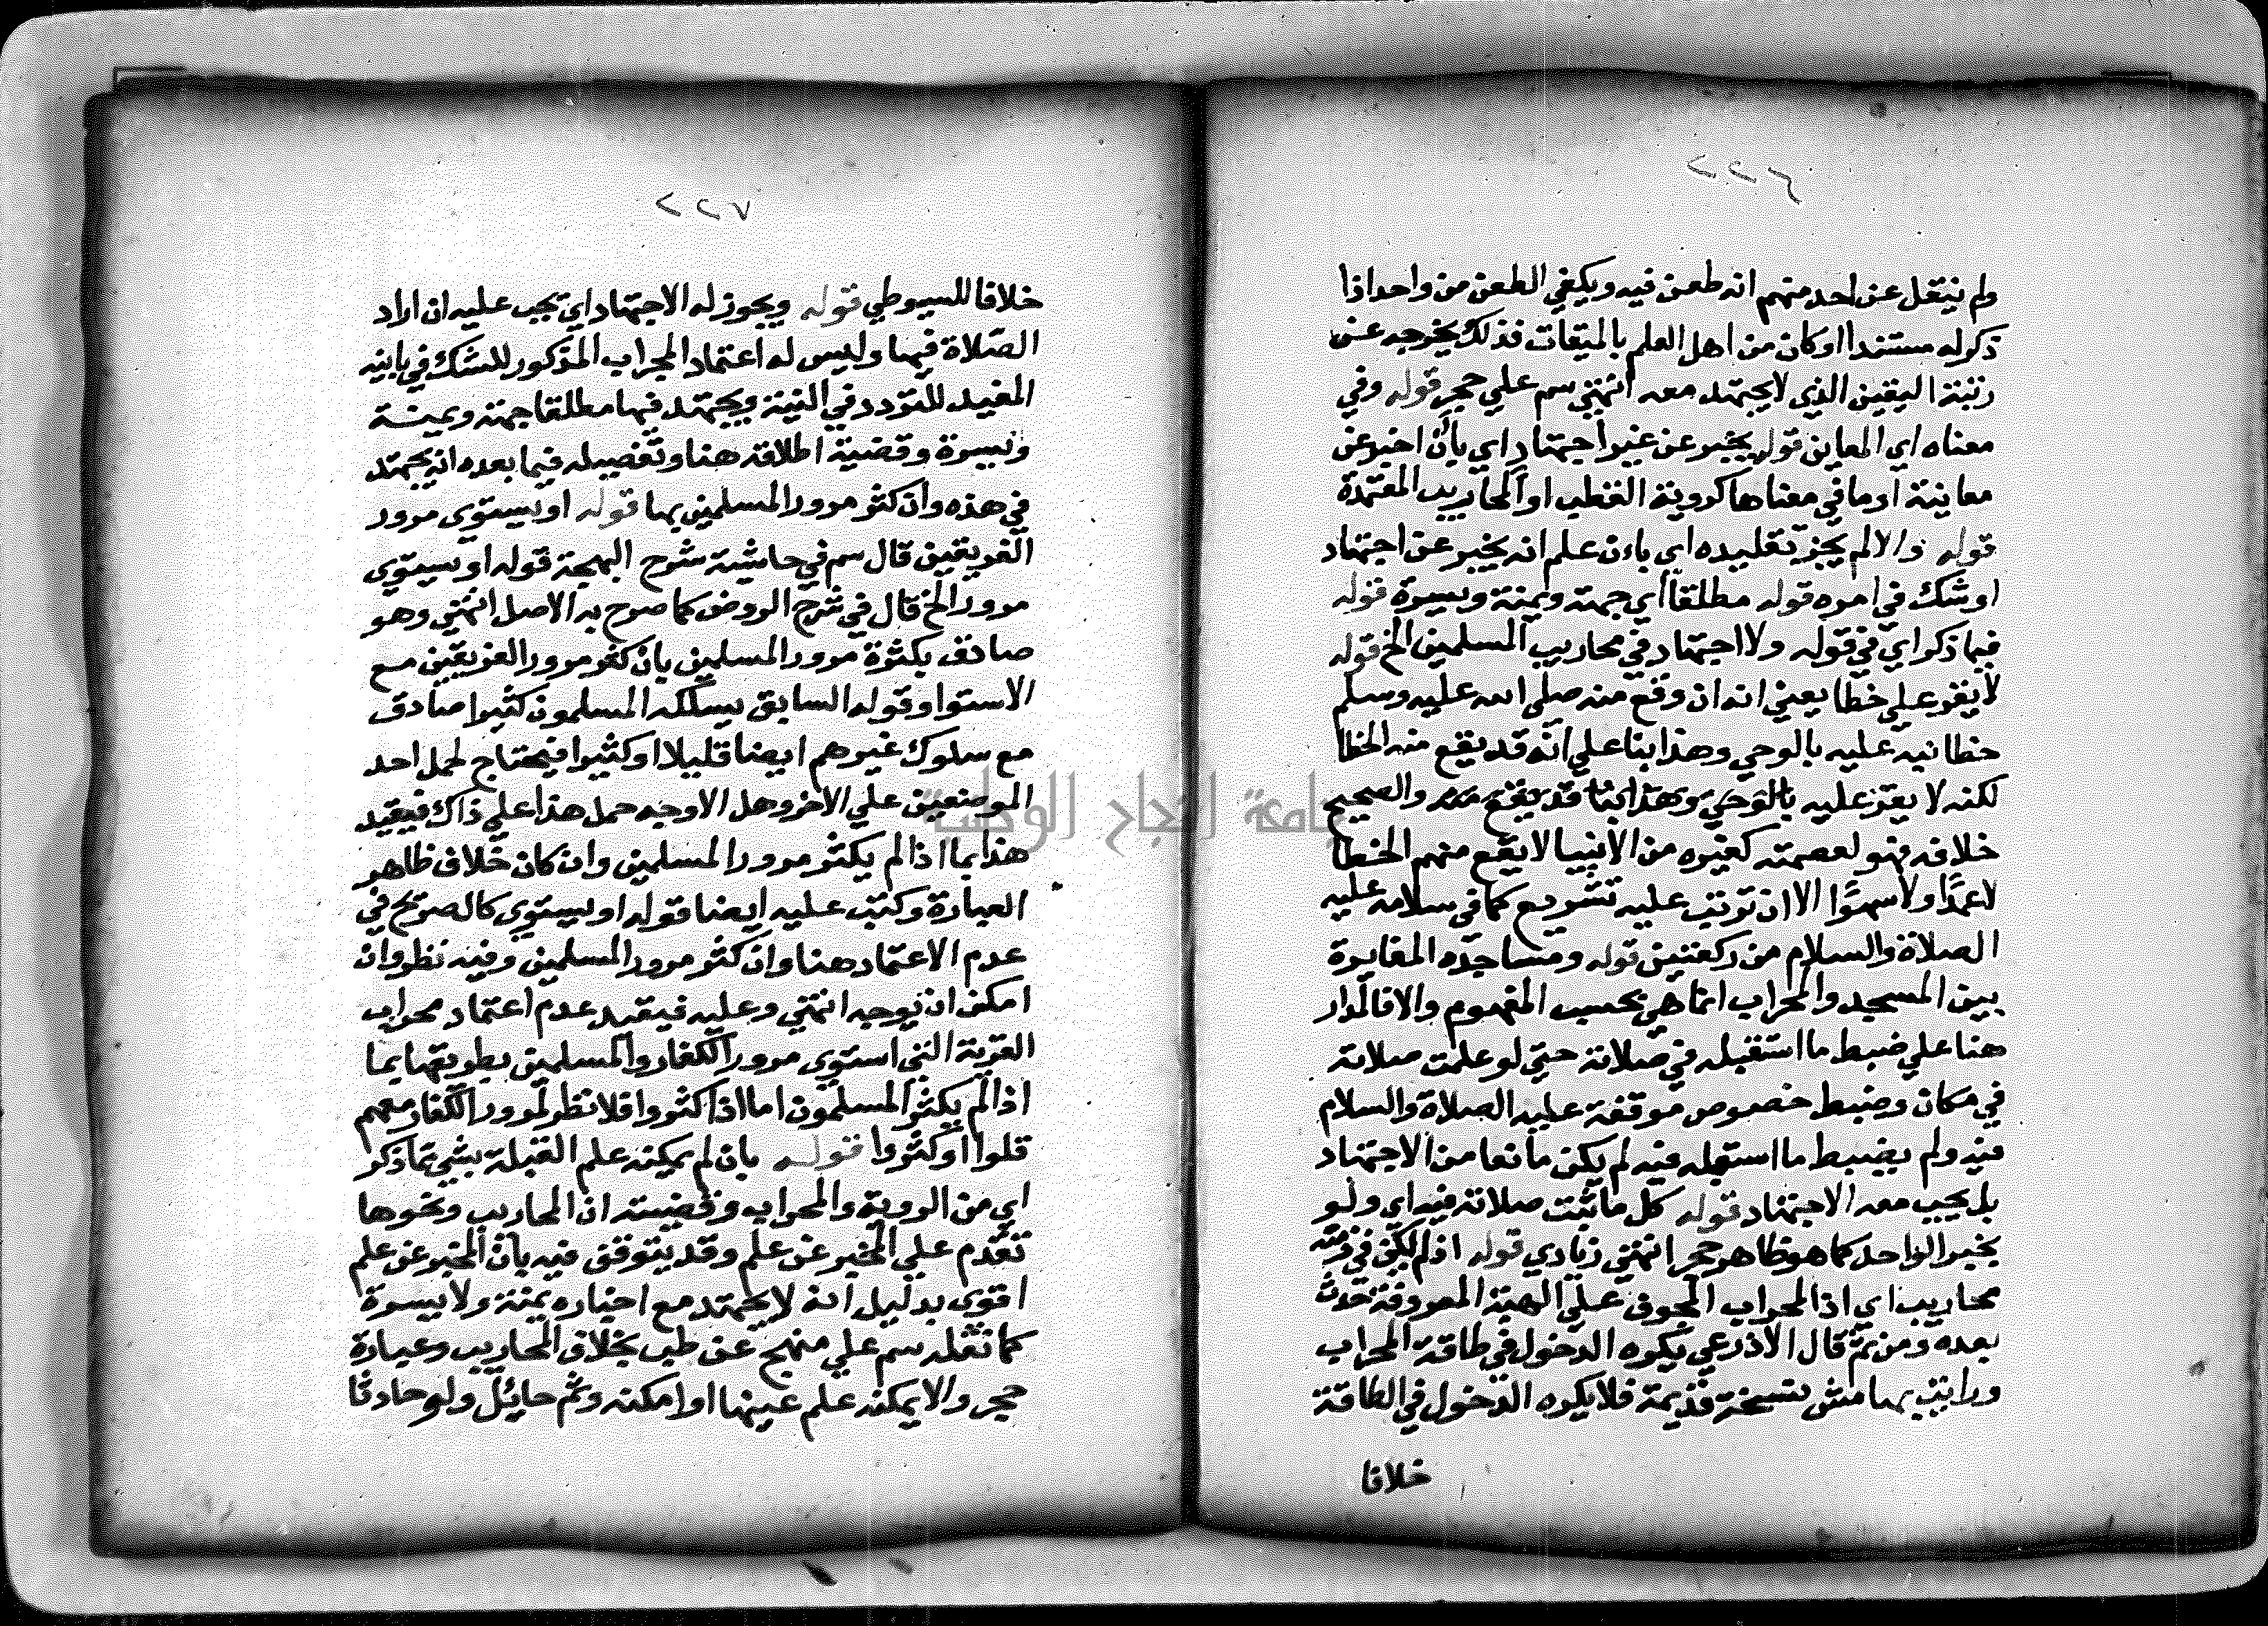 ٢٢٦
ولم ينقل عن احد منهم انه طعن فيه ويكفي الطعن من واحد اذا
ذكر له مستندا او كان من اهل العلم بالميقات فذلك يخرجه عن
رتبة اليقين الذي لا يجتهد معه انتهي سم علي حجر قوله وفي
معناه اي المعاين قوله يخبر عن غير اجتهاد اي بأن اخبر عن
معاينة او ما في معناها كروية القطب او المحاريب المعتمدة
قوله والا لم يجز تقليده اي بان علم انه يخبر عن اجتهاد
او شك في امره قوله مطلقا اي جهة ويمنة ويسرة قوله
فيما ذكر اي في قوله ولا اجتهاد في محاريب المسلمين الخ قوله
لا يقر علي خطا يعني انه ان وقع منه صلي الله عليه وسلم
خطا نبه عليه بالوحي وهذا بنا علي انه قد يقع منه الخطا
لكنه لا يقر عليه بالوحي وهذا بنا قد يقع منه والصحيح
خلافه فهو لعصمته كغيره من الانبيا لا يقع منهم الخطا
لا عمدا ولا سهوا الا ان ترتب عليه تشريع كما في سلامه عليه
الصلاة والسلام من ركعتين قوله ومساجده المغايرة
بين المسجد والمحراب انما هي بحسب المفهوم والا فالمدار
هنا علي ضبط ما استقبله في صلاته حتي لو علمت صلاته
في مكان وضبط خصوص موقفه عليه الصلاة والسلام
فيه ولم يضبط ما استقبله فيه لم يكن مانعا من الاجتهاد
بل يجب معه الاجتهاد قوله كل ما ثبت صلاته فيه اي ولو
بخبر الواحد كما هو ظاهر حجر انتهي زيادي قوله اذ لم يكن في زمنه
محاريب اي اذ المحراب المجوف علي الهيئة المعروفة حدث
بعده ومن ثم قال الاذرعي يكره الدخول في طاقة المحراب
ورايت بهامش نسخة قديمة فلا يكره الدخول في الطاقة
خلافا
٢٢٧
خلافا للسيوطي قوله ويجوز له الاجتهاد اي يجب عليه ان اراد
الصلاة فيها وليس له اعتماد المحراب المذكور للشك في بانيه
المفيد للتردد في النية ويجتهد فيها مطلقا جهة ويمنة
ويسرة وقضية اطلاقه هنا وتفصيله فيما بعده انه يجتهد
في هذه وان كثر مرور المسلمين بها قوله او يستوي مرور
الفريقين قال سم في حاشية شرح البهجة قوله او يستوي
مرور الخ قال في شرح الروض كما صرح به الاصل انتهي وهو
صادق بكثرة مرور المسلمين بان كثر مرور الفريقين مع
الاستوا وقوله السابق يسلكه المسلمون كثيرا صادق
مع سلوك غيرهم ايضا قليلا او كثيرا فيحتاج لحمل احد
الموضعين علي الاخر وهل الاوجه حمل هذا علي ذاك فيقيد
هذا بما اذا لم يكثر مرور المسلمين وان كان خلاف ظاهر
العبارة وكتب عليه ايضا قوله او يستوي كالصريح في
عدم الاعتماد هنا وان كثر مرور المسلمين وفيه نظر وان
امكن ان يوجه انتهي وعليه فيقيد عدم اعتماد محراب
القرية التي استوي مرور الكفار والمسلمين بطريقها بما
اذا لم يكثر المسلمون اما اذا كثروا فلا نظر لمرور الكفار معهم
قلوا او كثروا قوله بان لم يمكنه علم القبلة بشي مما ذكر
اي من الروية والمحراب وقضيته ان المحاريب ونحوها
تقدم علي المخبر عن علم وقد يتوقف فيه بان المخبر عن علم
اقوي بدليل انه لا يجتهد مع اخباره يمنة ولا يسرة
كما نقله سم علي منهج عن طب بخلاف المحاريب وعبارة
حجر والا يمكنه علم عينها او امكنه وثم حائل ولو حادثا
جامعة النجاح الوطنية